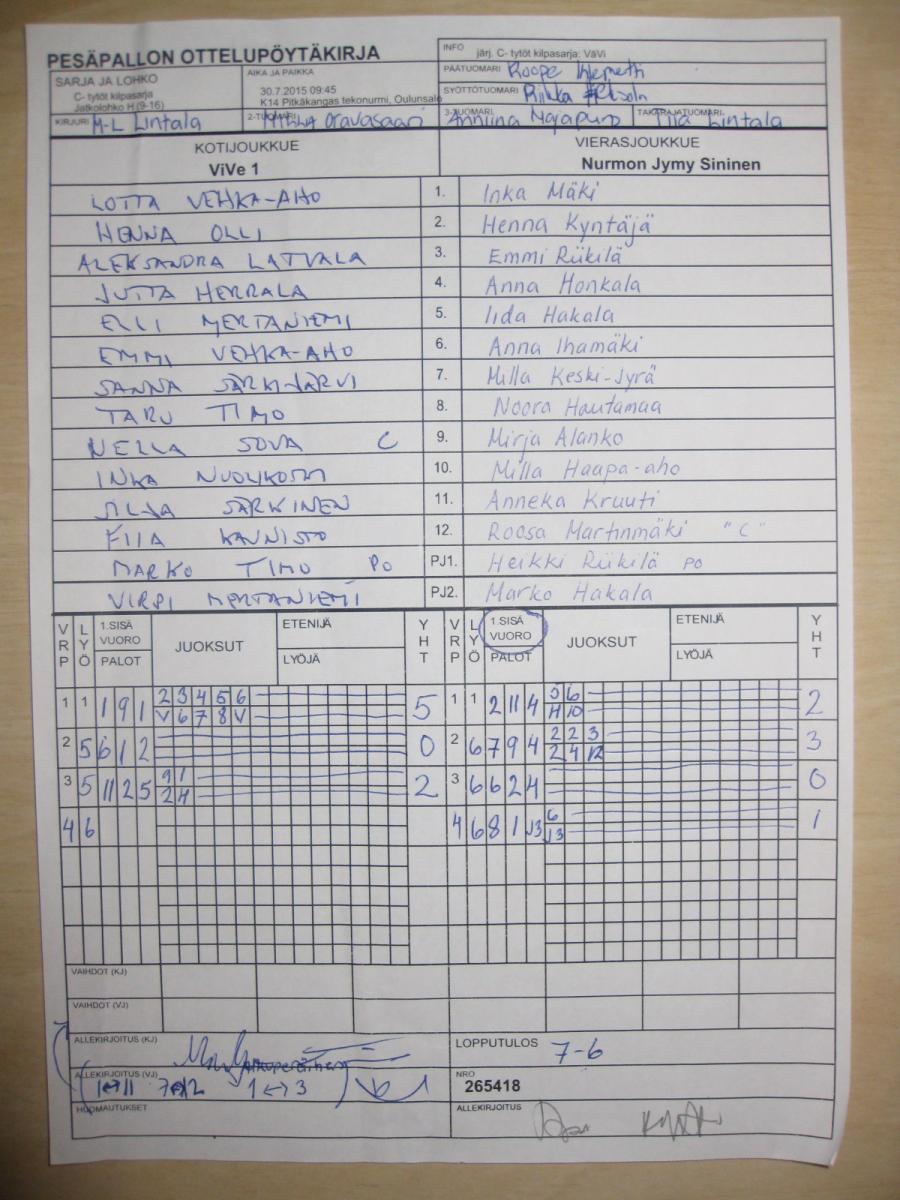 PESÄPALLON OTTELUPÖYTÄKIRJA
INFO järj. C- tytöt kilpasarja: VäVi
SARJA JA LOHKO
C- tytöt kilpasarja
Jatkolohko H (9-16)
AIKA JA PAIKKA
30.7.2015 09:45
K14 Pitkäkangas tekonurmi, Oulunsalo
PÄÄTUOMARI Roope
SYÖTTÖTUOMARI Riikka
KIRJURI M-L Lintala
2-TUOMARI Milla Oravasaari
3-TUOMARI Anniina Majapuro
TAKARAJATUOMARI Tiia Lintala
KOTIJOUKKUE
ViVe 1
VIERASJOUKKUE
Nurmon Jymy Sininen
LOTTA VEHKA-AHO 1. Inka Mäki
HENNA OLLI 2. Henna Kyntäjä
ALEKSANDRA LATVALA 3. Emmi Riikilä
JUTTA HERRALA 4. Anna Honkala
ELLI MERTANIEMI 5. Iida Hakala
EMMI VEHKA-AHO 6. Anna Ihamäki
SANNA SÄRKIJÄRVI 7. Milla Keski-Jyrä
TARU TIMO 8. Noora Hautamaa
NELLA SOVA C 9. Mirja Alanko
INKA NUOLIKOSKI 10. Milla Haapa-aho
SILJA SÄRKINEN 11. Anneka Kruuti
FIIA KANNISTO 12. Roosa Martinmäki "C"
MARKO TIMO PO PJ1. Heikki Riikilä PO
VIRPI MERTANIEMI PJ2. Marko Hakala
VRP LYÖ 1.SISÄ VUORO PALOT JUOKSUT ETENIJÄ LYÖJÄ YHT VRP LYÖ 1.SISÄ VUORO PALOT JUOKSUT ETENIJÄ LYÖJÄ YHT
1 1 1 9 1 2 3 4 5 6 5 1 1 2 11 4 5 6 2
V 6 7 8 V H 10
2 5 6 1 2 0 2 6 7 9 4 2 2 3 3
2 4 12
3 5 11 2 5 9 1 2 3 6 6 2 4 0
2 H
4 6 4 6 8 1 J3 6 1
J3
VAIHDOT (KJ)
VAIHDOT (VJ)
ALLEKIRJOITUS (KJ)
LOPPUTULOS 7-6
ALLEKIRJOITUS (VJ)
1↔11 7↔12 1↔3
NRO
265418
HUOMAUTUKSET
ALLEKIRJOITUS